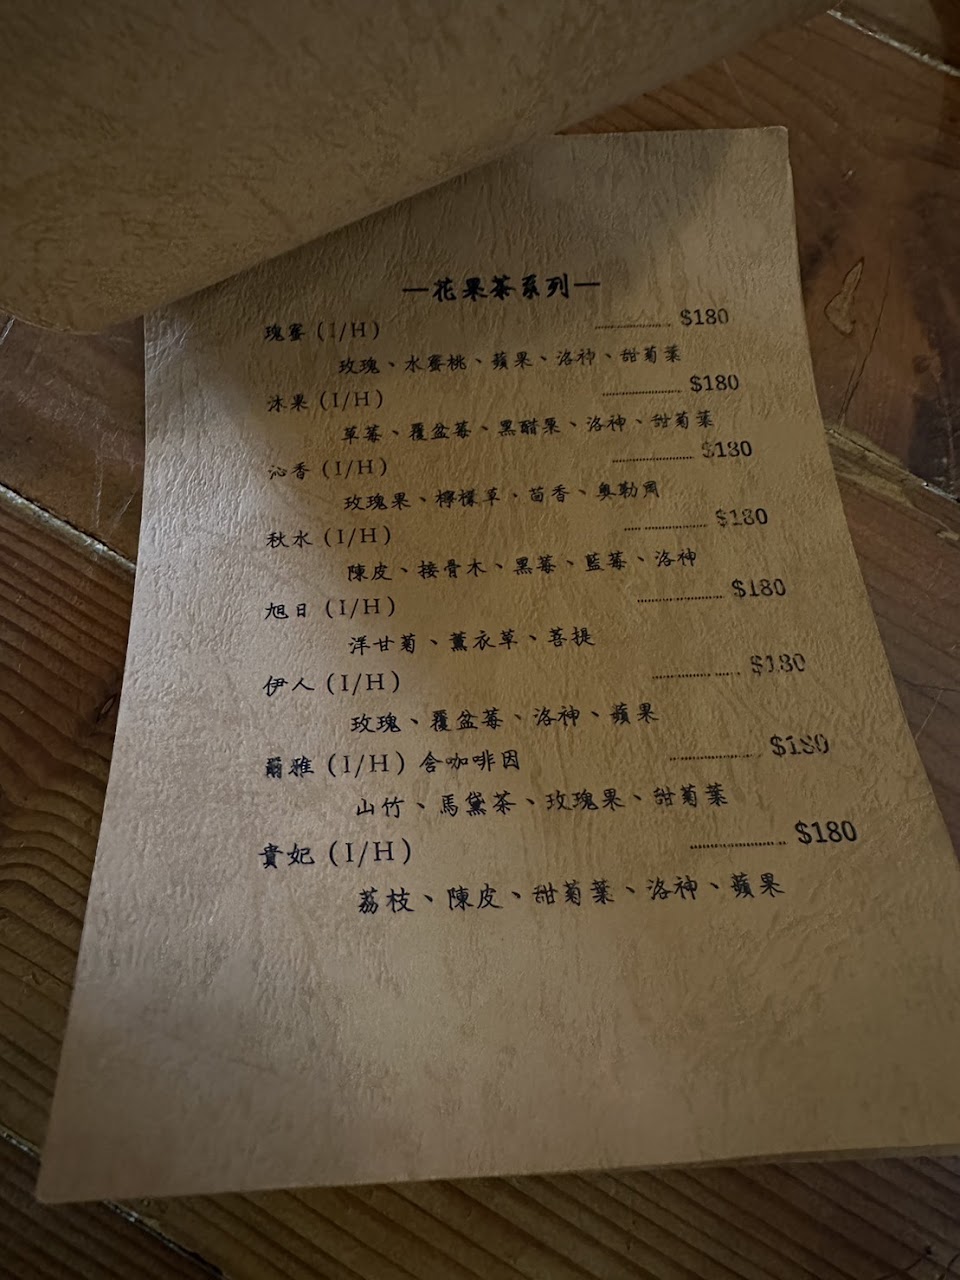 —花果茶系列—
瑰蜜 (I/H) ........................ $180
玫瑰、水蜜桃、蘋果、洛神、甜菊葉
沐果 (I/H) ........................ $180
草莓、覆盆莓、黑醋栗、洛神、甜菊葉
沁香 (I/H) ........................ $180
玫瑰果、檸檬草、茴香、奧勒岡
秋水 (I/H) ........................ $180
陳皮、接骨木、黑莓、藍莓、洛神
旭日 (I/H) ........................ $180
洋甘菊、薰衣草、菩提
伊人 (I/H) ........................ $180
玫瑰、覆盆莓、洛神、蘋果
爾雅 (I/H) 含咖啡因 ........................ $180
山竹、馬黛茶、玫瑰果、甜菊葉
貴妃 (I/H) ........................ $180
荔枝、陳皮、甜菊葉、洛神、蘋果